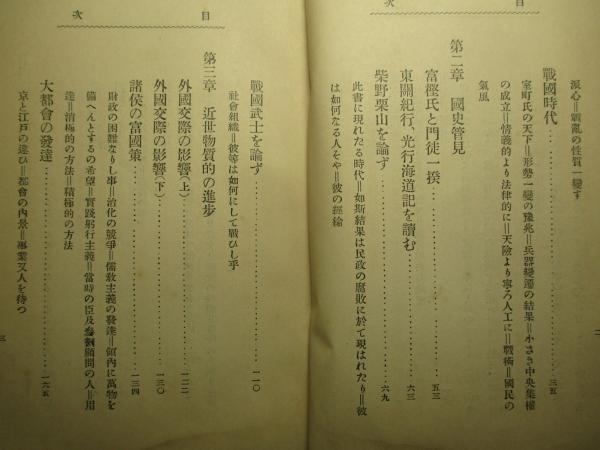 目次
派心‖戰亂の性質一變す
戰國時代……………三五
室町氏の天下‖形勢一變の豫兆‖兵器變遷の結果‖小さき中央集權
の成立‖情義的より法律的に‖天險より寧ろ人工に‖戰術‖國民の
氣風
第二章 國史管見
富樫氏と門徒一揆……………五三
東關紀行、光行海道記を讀む……………六三
柴野栗山を論ず……………六九
此書に現れたる時代‖如斯結果は民政の腐敗に於て現はれたり‖彼
は如何なる人そや‖彼の經綸
二
目次
戰國武士を論ず……………一一〇
社會組織‖彼等は如何にして戰ひし乎
第三章 近世物質的の進步
外國交際の影響(上)……………一二二
外國交際の影響(下)……………一三〇
諸侯の富國策……………一三四
財政の困難なりし事‖治化の競爭‖儒敎主義の發達‖領內に萬物を
備へんとするの希望‖實踐躬行主義‖當時の臣及參劃顧問の人‖用
達‖消極的方法‖積極的の方法
大都會の發達……………一六五
京と江戶の違ひ‖都會の內景‖事業又人を待つ
三